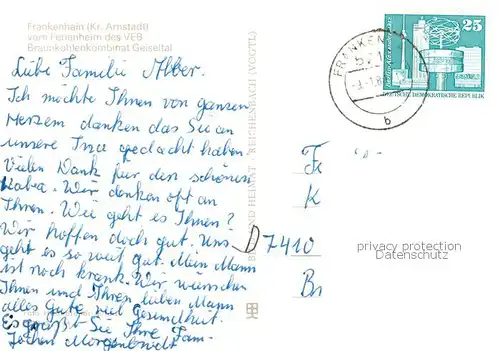 Frankenhain (Kr. Arnstadt)
vom Ferienheim des VEB
Braunkohlenkombinat Geiseltal
Liebe Familie
Ich möchte Ihnen von ganzen
Herzem danken das Sie an
unsere Ina gedacht haben
Vielen Dank für den schönen
Wir denken oft an
Ihnen. Wie geht es Ihnen?
Wir hoffen doch gut. Uns
geht es so weit gut. Mein Mann
ist noch krank. Wir wünschen
Ihnen und Ihren lieben Mann
alles Gute viel Gesundheit.
Es grüßt Sie Ihre Fam-
Jochen Morgenbrodt
BILD UND HEIMAT REICHENBACH (VOGTL)
FRANKEN
b
25
DEUTSCHE DEMOKRATISCHE REPUBLIK
Fr
K
D 7410
privacy protection
Datenschutz
Br